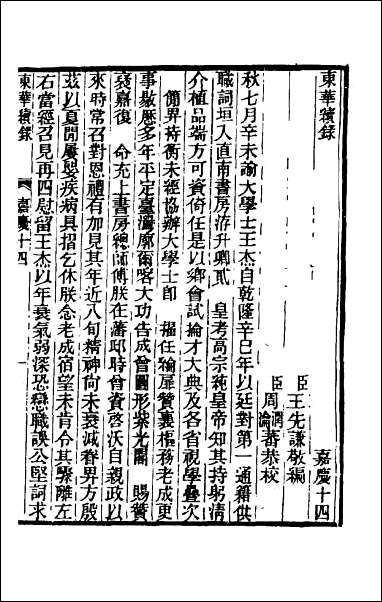 東華續錄　嘉慶十四
臣王先謙敬編
臣周潤蕃周瀹蕃恭校
秋七月辛未諭大學士王杰自乾隆辛巳年以廷對第一通籍供
職詞垣入直南書房洊升卿貳　皇考高宗純皇帝知其持躬清
介植品端方可資倚任是以鄉會試掄才大典及各省視學疊次
簡畀持衡未經協辦大學士卽　擢任綸扉贊襄樞務老成更
事敭歷多年平定臺灣廓爾喀大功告成曾圖形紫光閣　賜贊
襃嘉復　命充上書房總師傅朕在藩邸時曾資啓沃自親政以
來時常召對恩禮有加見其年近八旬精神尙未衰減眷畀方殷
茲以夏閒屢嬰疾病具摺乞休朕念老成宿望未肯令其驟離左
右當經召見再四慰留王杰以年衰氣弱深恐戀職誤公堅詞求
東華續錄　嘉慶十四　一